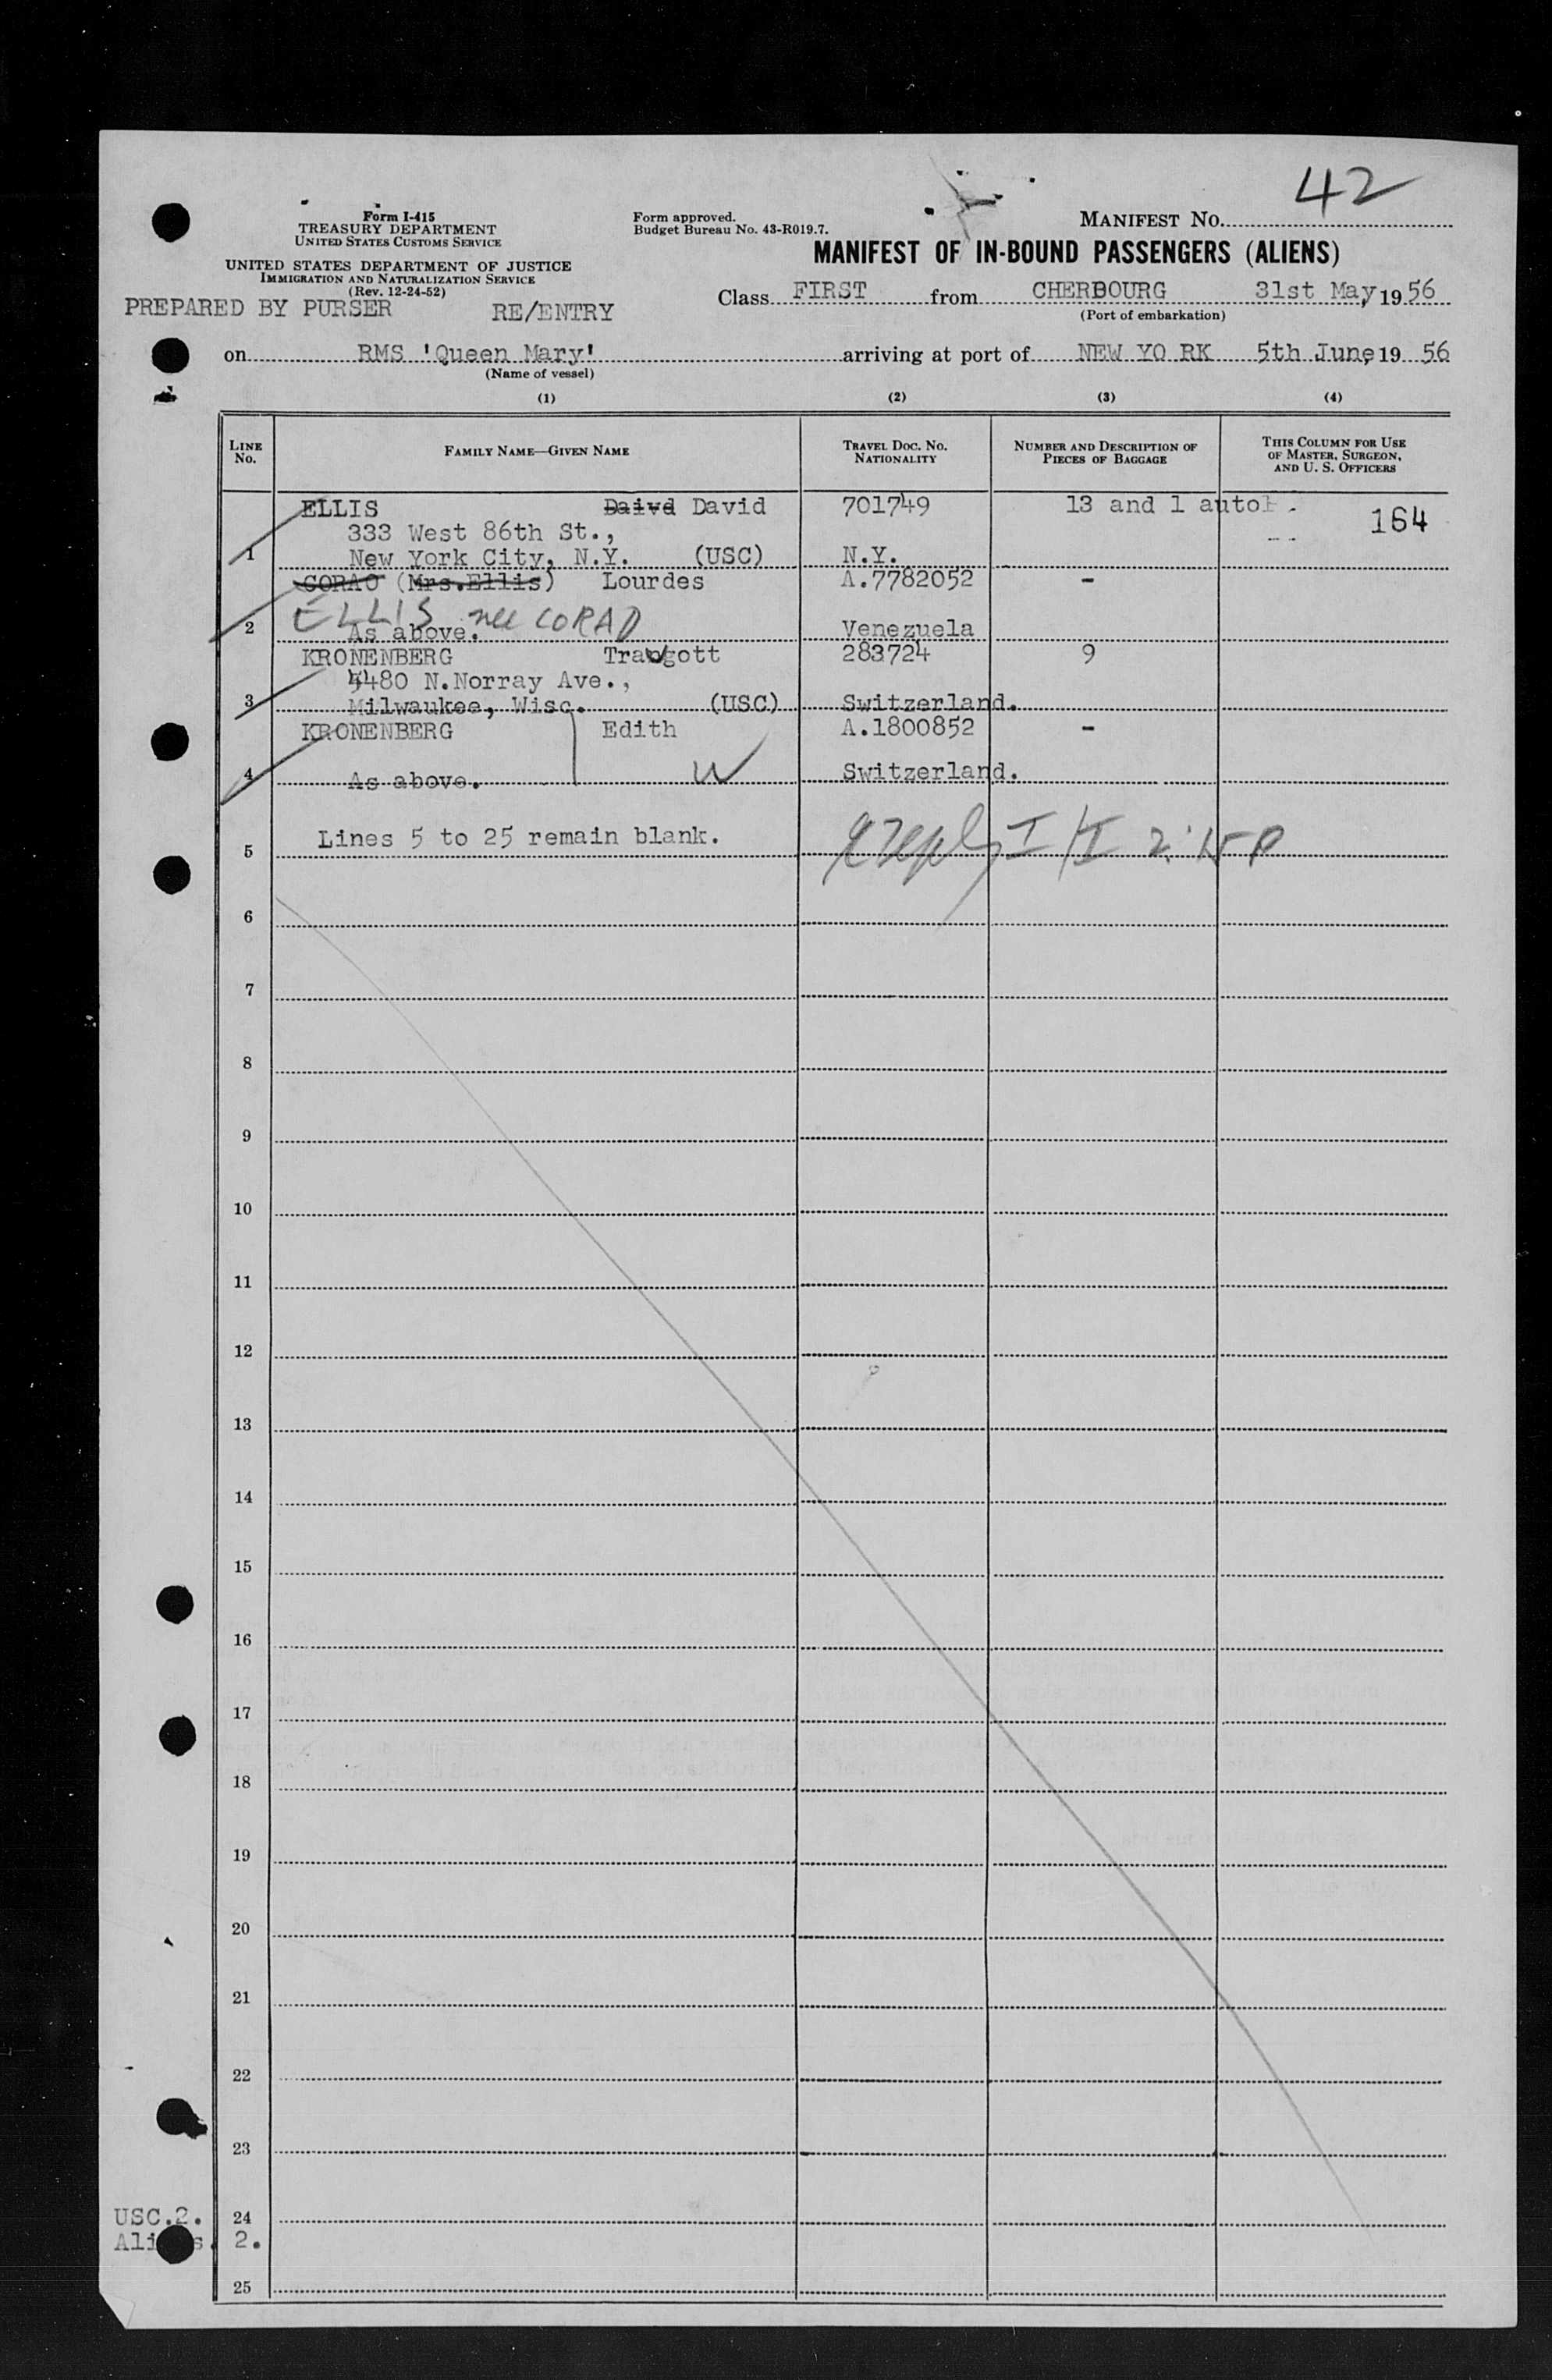 42
Form I-415
TREASURY DEPARTMENT
UNITED STATES CUSTOMS SERVICE
Form approved.
Budget Bureau No. 43-R019.7.
MANIFEST NO.
MANIFEST OF IN-BOUND PASSENGERS (ALIENS)
UNITED STATES DEPARTMENT OF JUSTICE
IMMIGRATION AND NATURALIZATION SERVICE
(Rev. 12-24-52)
PREPARED BY PURSER RE/ENTRY
Class FIRST from CHERBOURG 31st May, 1956
(Port of embarkation)
on RMS 'Queen Mary' arriving at port of NEW YO RK 5th June, 19 56
(Name of vessel)
(1) (2) (3) (4)
LINE NO. FAMILY NAME—GIVEN NAME TRAVEL DOC. NO. NATIONALITY NUMBER AND DESCRIPTION OF PIECES OF BAGGAGE THIS COLUMN FOR USE OF MASTER, SURGEON, AND U. S. OFFICERS
ELLIS Daivd David 701749 13 and 1 auto 164
333 West 86th St.,
1 New York City, N.Y. (USC) N.Y.
CORAO (Mrs.Ellis) Lourdes A.7782052 -
ELLIS nee CORAO
2 As above. Venezuela
KRONENBERG Traugott 283724 9
4480 N.Norray Ave.,
3 Milwaukee, Wisc. (USC) Switzerland.
KRONENBERG Edith A.1800852 -
4 As above. W Switzerland.
5 Lines 5 to 25 remain blank. I/I 2:15 P
6
7
8
9
10
11
12
13
14
15
16
17
18
19
20
21
22
23
USC.2. 24
Ali s. 2.
25